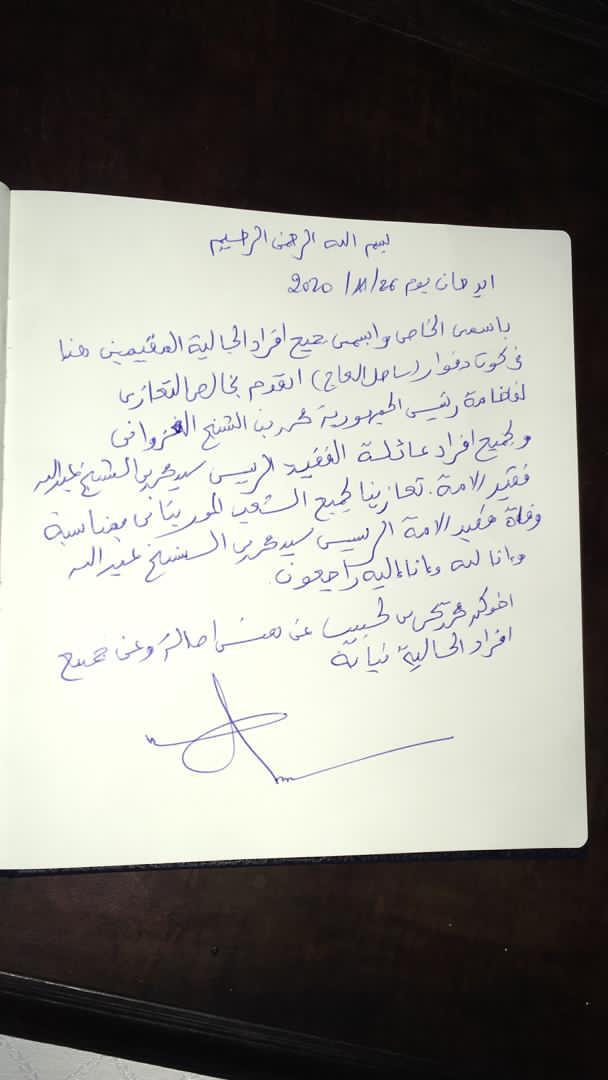 بسم الله الرحمن الرحيم
ابيدجان يوم 26/11/2020
باسمي الخاص وباسم جميع افراد الجالية المقيمين هنا
في كوتا دفوار (ساحل العاج) اتقدم بخالص التعازي
لفخامة رئيس الجمهورية محمد بن الشيخ الغزواني
ولجميع افراد عائلة الفقيد الرييس سيد محمد بن الشيخ عبدالله
فقيد الامة. تعازينا لجميع الشعب الموريتاني بمناسبة
وفاة فقيد الامة الرييس سيد محمد بن الشيخ عبد الله
وانا لله وانا اليه راجعون.
اخوكم محمد بن لحبيب عن نفسي اصالة وعن جميع
افراد الجالية نيابة